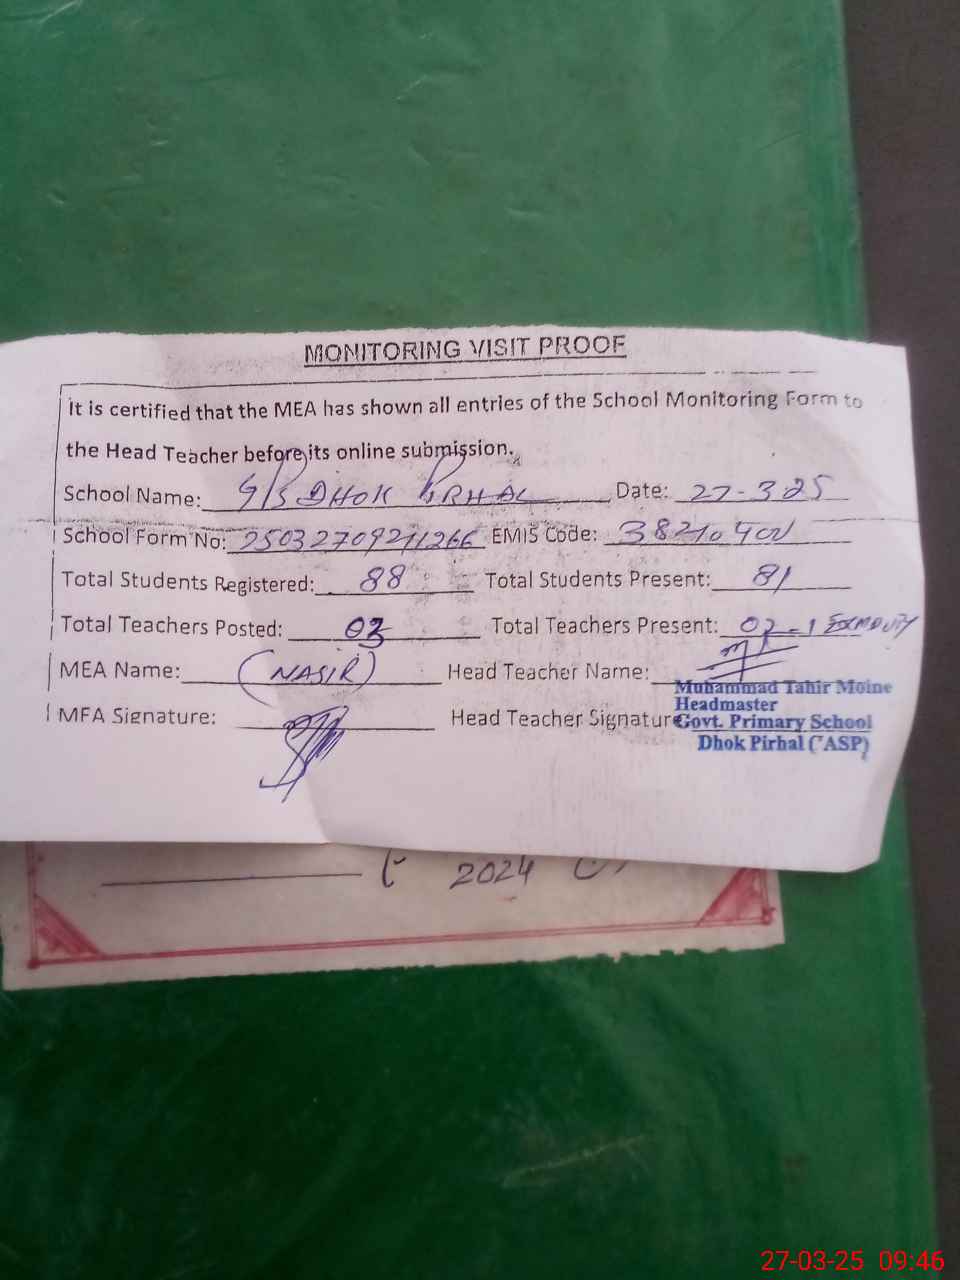 MONITORING VISIT PROOF
It is certified that the MEA has shown all entries of the School Monitoring Form to
the Head Teacher before its online submission.
School Name: G/PS DHOK PIRHAL Date: 27-3-25
School Form No: EMIS Code:
Total Students Registered: 88 Total Students Present: 81
Total Teachers Posted: 03 Total Teachers Present: 02-1
MEA Name: (NASIR) Head Teacher Name:
Muhammad Tahir Moine
Headmaster
MEA Signature: Head Teacher Signature
Govt. Primary School
Dhok Pirhal (TASP)
2024
27-03-25 09:46